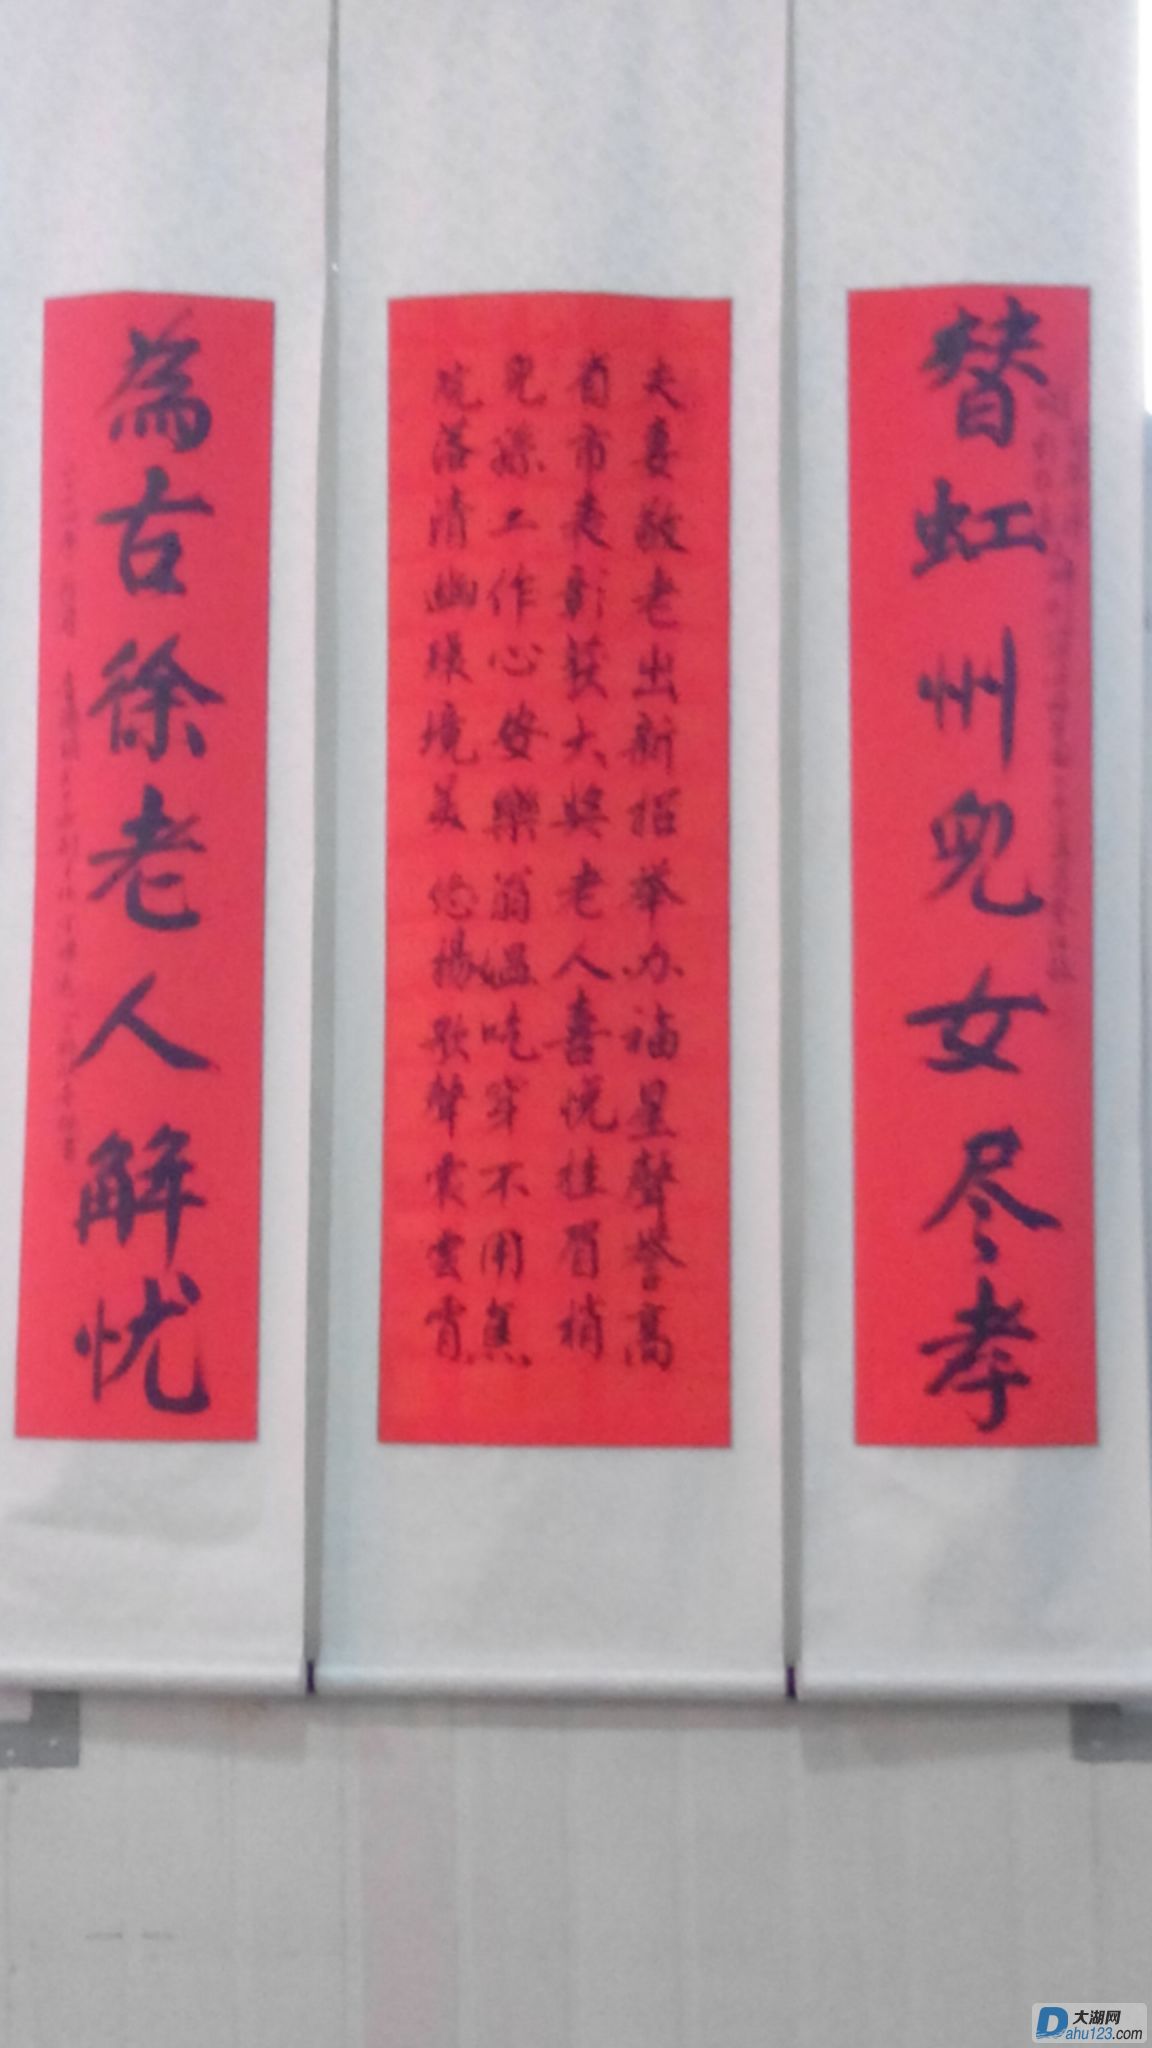 替虹州兒女尽孝
夫妻敬老出新招举办福星聲誉高
省市表彰获大奖老人喜悦挂眉梢
兒孫工作心安樂翁温吃穿不用焦
院落清幽環境美悠揚歌聲震雲霄
為古徐老人解忧
大湖网
Dahu123.com